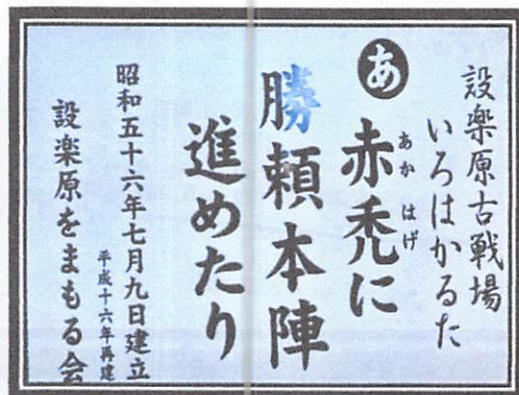 設楽原古戦場
いろはかるた
あ
赤禿に
あかはげ
勝頼本陣
進めたり
昭和五十六年七月九日建立
平成十六年再建
設楽原をまもる会